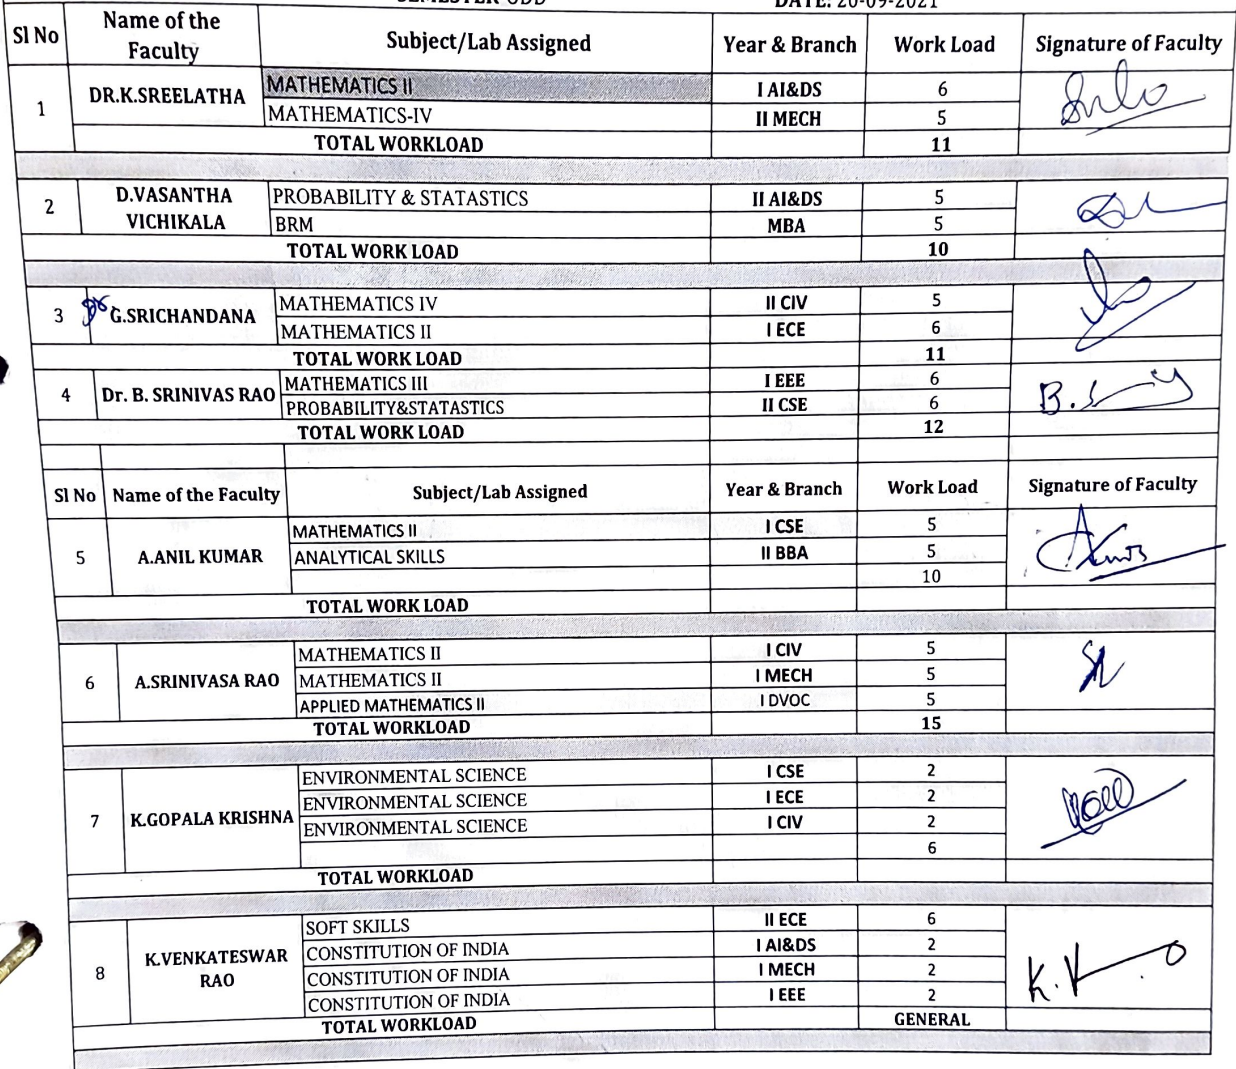 SEMESTER-ODD DATE: 20-09-2021
Sl No Name of the Faculty Subject/Lab Assigned Year & Branch Work Load Signature of Faculty
1 DR.K.SREELATHA MATHEMATICS II I AI&DS 6
MATHEMATICS-IV II MECH 5
TOTAL WORKLOAD 11
2 D.VASANTHA VICHIKALA PROBABILITY & STATASTICS II AI&DS 5
BRM MBA 5
TOTAL WORK LOAD 10
3 Dr G.SRICHANDANA MATHEMATICS IV II CIV 5
MATHEMATICS II I ECE 6
TOTAL WORK LOAD 11
4 Dr. B. SRINIVAS RAO MATHEMATICS III I EEE 6
PROBABILITY&STATASTICS II CSE 6
TOTAL WORK LOAD 12
Sl No Name of the Faculty Subject/Lab Assigned Year & Branch Work Load Signature of Faculty
5 A.ANIL KUMAR MATHEMATICS II I CSE 5
ANALYTICAL SKILLS II BBA 5
10
TOTAL WORK LOAD
6 A.SRINIVASA RAO MATHEMATICS II I CIV 5
MATHEMATICS II I MECH 5
APPLIED MATHEMATICS II I DVOC 5
TOTAL WORKLOAD 15
7 K.GOPALA KRISHNA ENVIRONMENTAL SCIENCE I CSE 2
ENVIRONMENTAL SCIENCE I ECE 2
ENVIRONMENTAL SCIENCE I CIV 2
6
TOTAL WORKLOAD
8 K.VENKATESWAR RAO SOFT SKILLS II ECE 6
CONSTITUTION OF INDIA I AI&DS 2
CONSTITUTION OF INDIA I MECH 2
CONSTITUTION OF INDIA I EEE 2
TOTAL WORKLOAD GENERAL